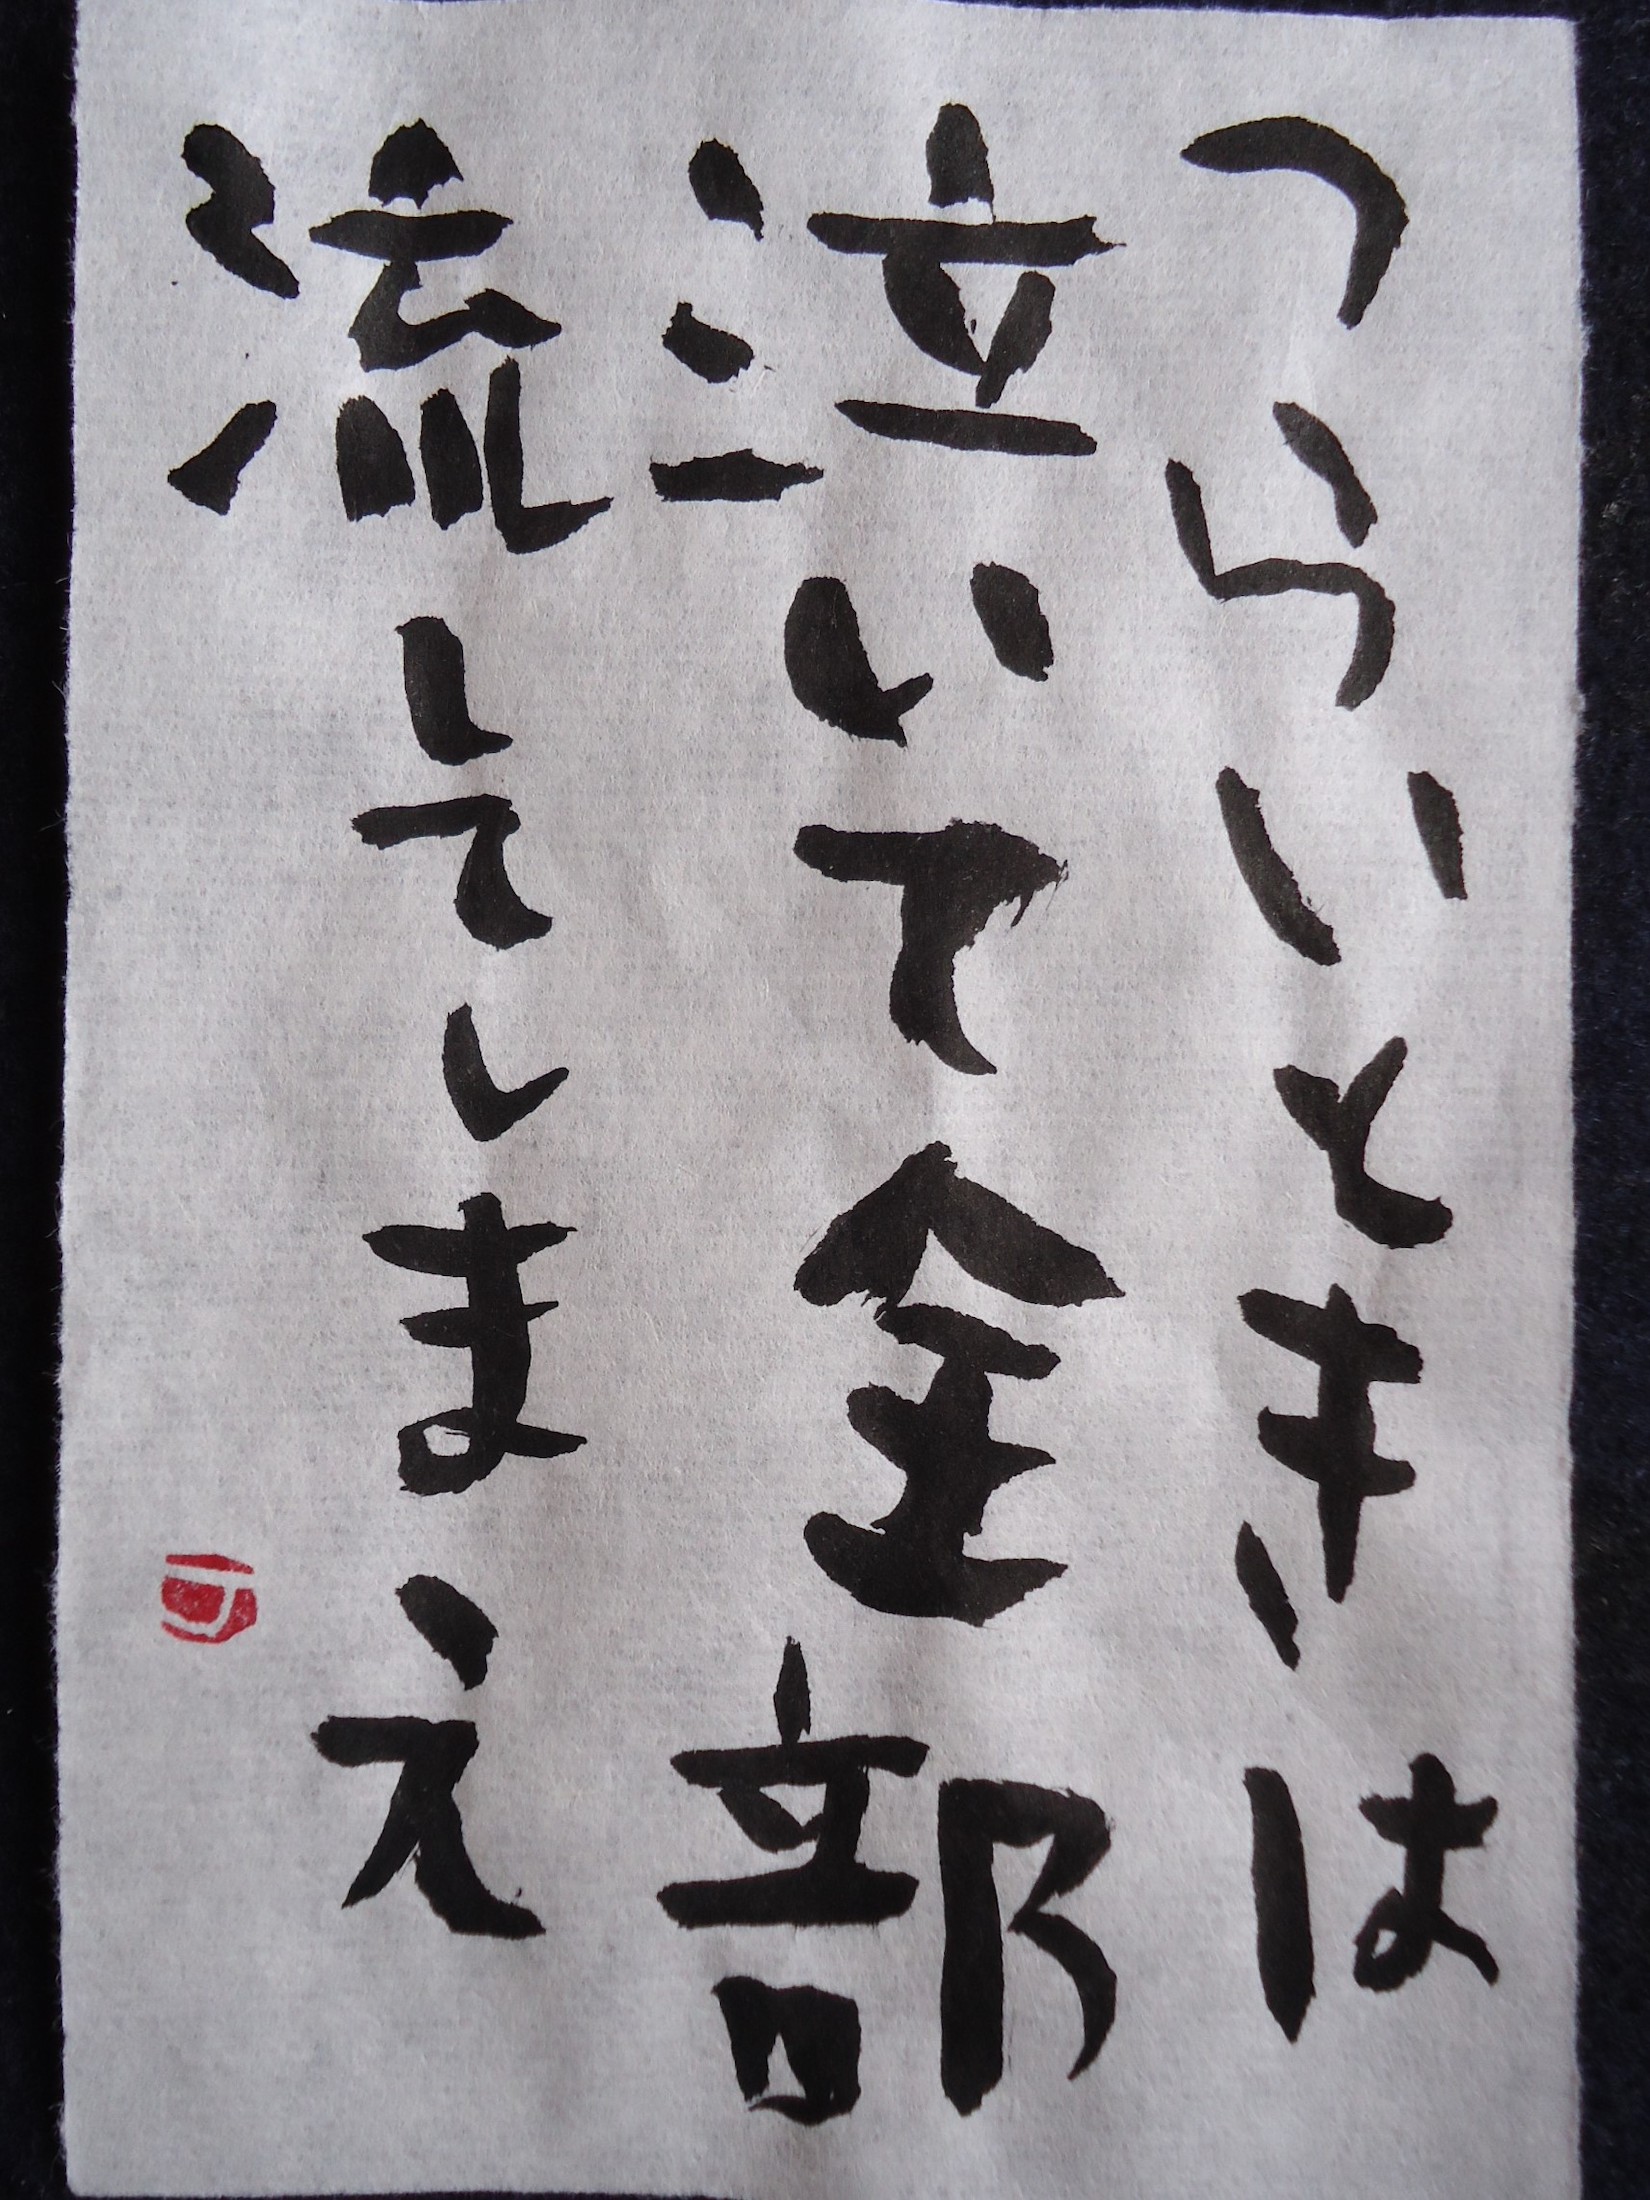 つらいときは
泣いて全部
流してしまえ